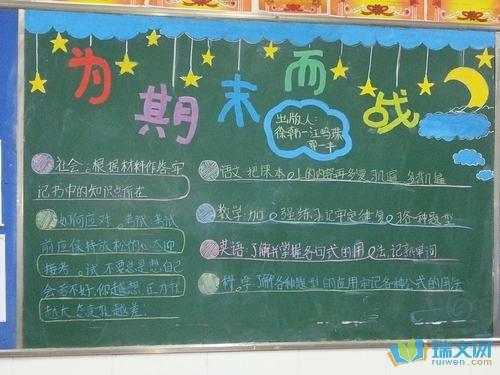 为期末而战
出版人：
徐韩一江鸣珠
郭一丰
社会：根据材料作答牢
记书中的知识点所在
如何应对 考试考试
前应保持放松的心态迎
接考 试不要总是想自己
会考不好，你越想，压力
越大，态度就越差。
语文：把课本 上的内容再多复习几遍 多读几篇
数学：加 强练习记牢定律 各种题型
英语：了解并掌握各句式的用 法，记熟单词
科 学：了解各种题型的应用和记各种公式的用法
瑞文网
ruiwen.com